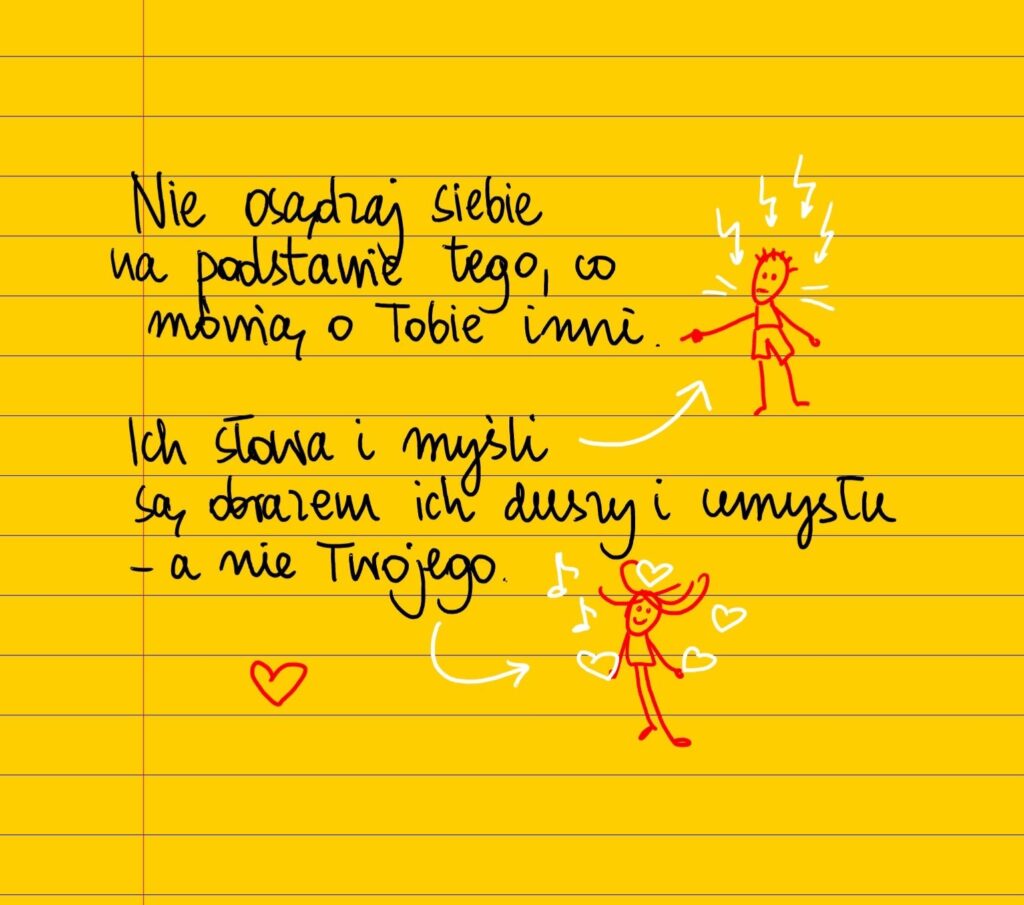 Nie osądzaj siebie
na podstawie tego, co
mówią o Tobie inni.
Ich słowa i myśli
są obrazem ich duszy i umysłu
- a nie Twojego.